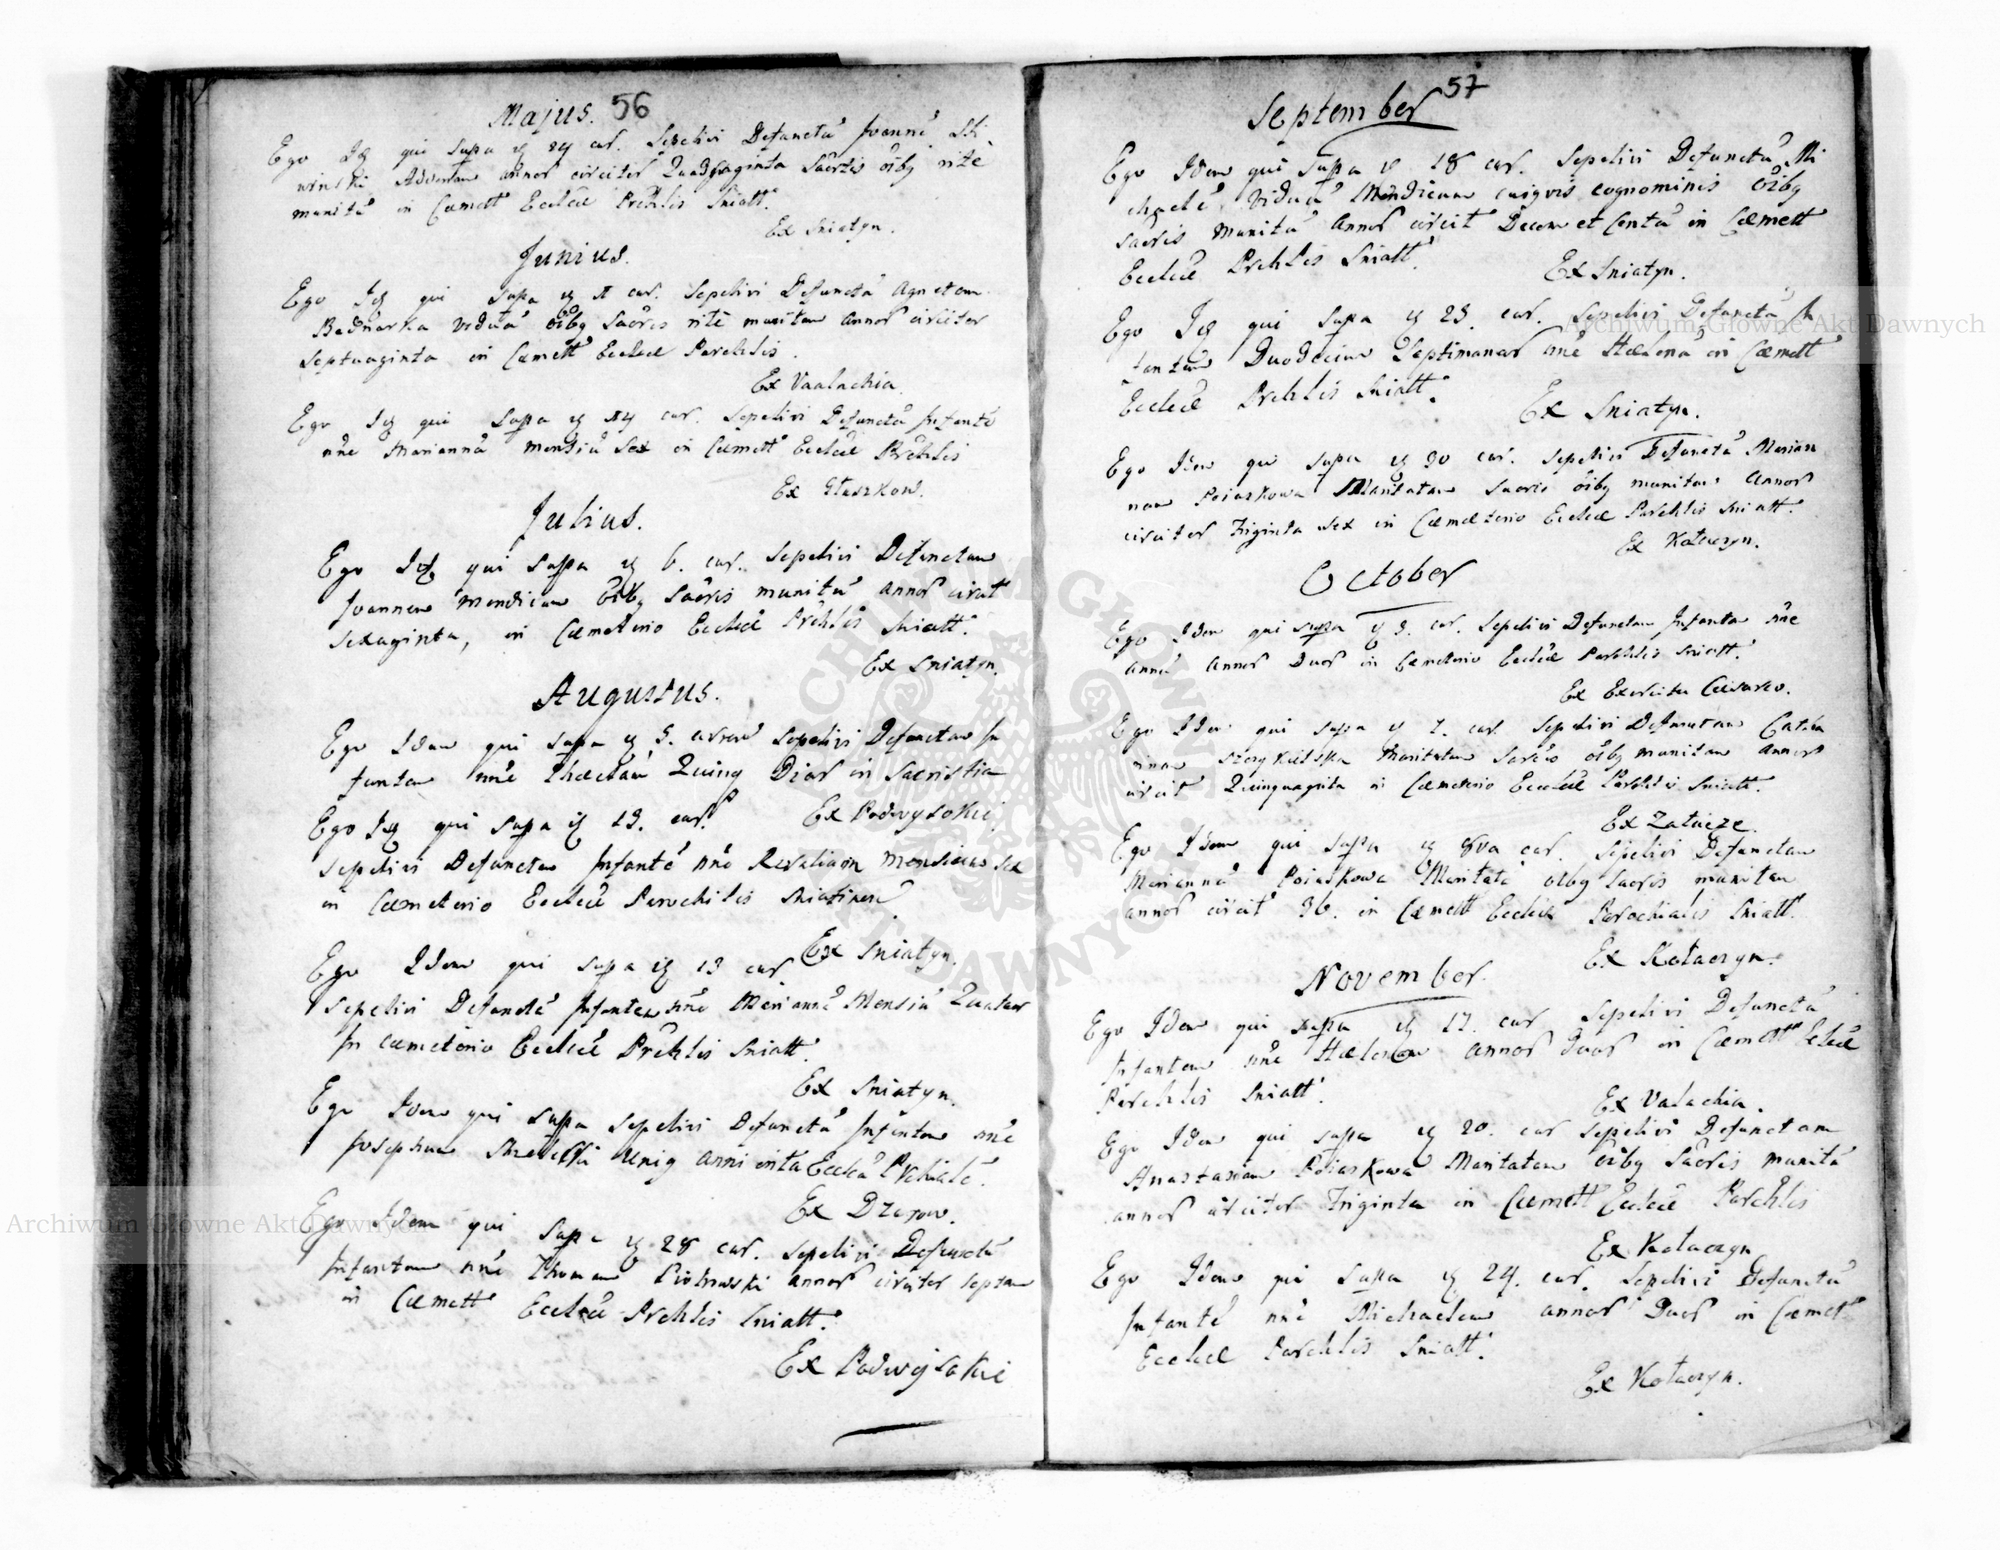 Majus. 56
Ego Idq qui supa ig 24 cur. Sepelivi Defunctū Joannē
annos circiter Quadraginta Sacris oibg ritè
munitū in Cœmettº Ecclæ Prchlis Sniatt.
Ex Sniatyn.
Junius.
Ego Idq qui supa ig cur. Sepelivi Defunctā Agnetem
Bednarka viduā oibg Sacris ritè munitam annos circiter
Septuaginta in Cœmettº Ecclæ Parchlis.
Ex Vaalachia.
Ego Idq qui supa ig 14 cur. Sepelivi Defunctā Infantē
nñe Mariannā mensiū Sex in Cœmettº Ecclæ Prchlis
Ex
Julius.
Ego Idq qui supa ig 6. cur. Sepelivi Defunctum
Joannem mendicum oibg Sacris munitū annos circit
sexaginta, in Cœmeterio Ecclæ Prchlis Sniatt.
Ex Sniatyn.
Augustus.
Ego Idem qui supa ig 5. curren Sepelivi Defunctam In
fantem nñe Theclam Quinq Dies in Sacristia
Ex Podwysokie.
Ego Idq qui supa ig 13. cur.
Sepelivi Defunctam Infantē nñe Rosaliam mensium sex
in Cœmeterio Ecclæ Parochilis Sniatinen
Ex Sniatyn.
Ego Idem qui supa ig 13 cur
Sepelivi Defunctā Infantem nñe Mariannā Mensiū Quatuor
In cœmeterio Ecclæ Prchlis Sniatt.
Ex Sniatyn.
Ego Idem qui supa Sepelivi Defunctū Infantem nñe
Josephum unig anni Ecclā Prchialē.
Ex Dzurow.
Ego Idem qui supa ig 28 cur. Sepelivi Defunctū
Infantem nñe Thomam Piotrowski annos circiter septem
in Cœmettº Ecclæ Prchlis Sniatt.
Ex Podwysokie
57
September
Ego Idem qui supa ig 18 cur. Sepelivi Defunctū Mi
chaelē viduū Mendicum cuigvis cognominis oibg
sacris munitū annos circit Decem et Centū in Cœmettº
Ecclæ Prchlis Sniatt.
Ex Sniatyn.
Ego Idq qui supa ig 23. cur. Sepelivi Defunctā In
fantem Duodecim Septimanas nñe Helenā in Cœmettº
Ecclæ Prchlis Sniatt.
Ex Sniatyn.
Ego Idem qui supa ig 30 cur. Sepelivi Defunctā Marian
nam Poiaskowa Maritatam Sacris oibg munitam annos
circiter Triginta sex in Cœmeterio Ecclæ Parchlis Sniatt.
Ex Kołaczyn.
October
Ego Idem qui supa ig 3. cur. Sepelivi Defunctam Infantem nñe
annā annos Duos in Cœmeterio Ecclæ Parchlis Sniatt.
Ex Exercitu Cæsareo.
Ego Idem qui supa ig 7. cur. Sepelivi Defunctam Catha
rinam Maritatam Sacris oibg munitam annos
circit Quinquaginta in Cœmeterio Ecclæ Parchlis Sniatt.
Ex Załucze.
Ego Idem qui supa ig 8va cur. Sepelivi Defunctam
Mariannā Poiaskowa Maritatā oibg Sacris munitam
annos circit 36. in Cœmettº Ecclæ Parochialis Sniatt.
Ex Kołaczyn.
November.
Ego Idem qui supa ig 17. cur Sepelivi Defunctā
Infantem nñe Helenam annos duos in Cœmettº Ecclæ
Parchlis Sniatt.
Ex Valachia.
Ego Idem qui supa ig 20. cur Sepelivi Defunctam
Anastasiam Poiaskowa Maritatam oibg Sacris munitā
annos circiter Triginta in Cœmettº Ecclæ Parchlis
Ex Kołaczyn
Ego Idem qui supa ig 24. cur. Sepelivi Defunctū
Infantē nñe Michaelem annos Duos in Cœmettº
Ecclæ Parchlis Sniatt.
Ex Kołaczyn.
Archiwum Główne Akt Dawnych
Archiwum Główne Akt Dawnych
ARCHIWUM GŁÓWNE AKT DAWNYCH